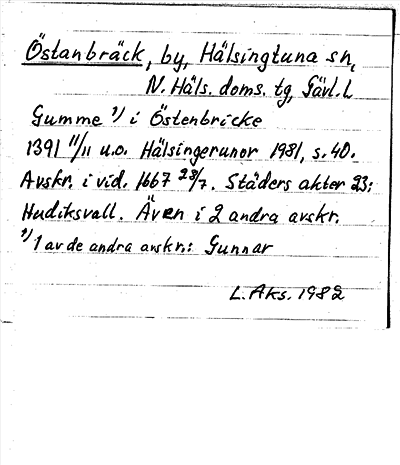 Östanbräck, by, Hälsingtuna sn,
N. Häls. doms. tg, Gävl. L
Gumme ¹⁾ i Östenbricke
1391 11/11 u.o. Hälsingerunor 1981, s. 40.
Avskr. i vid. 1667 23/7. Städers akter 23:
Hudiksvall. Även i 2 andra avskr.
¹⁾ 1 av de andra avskr.: Gunnar
L. Aks. 1982